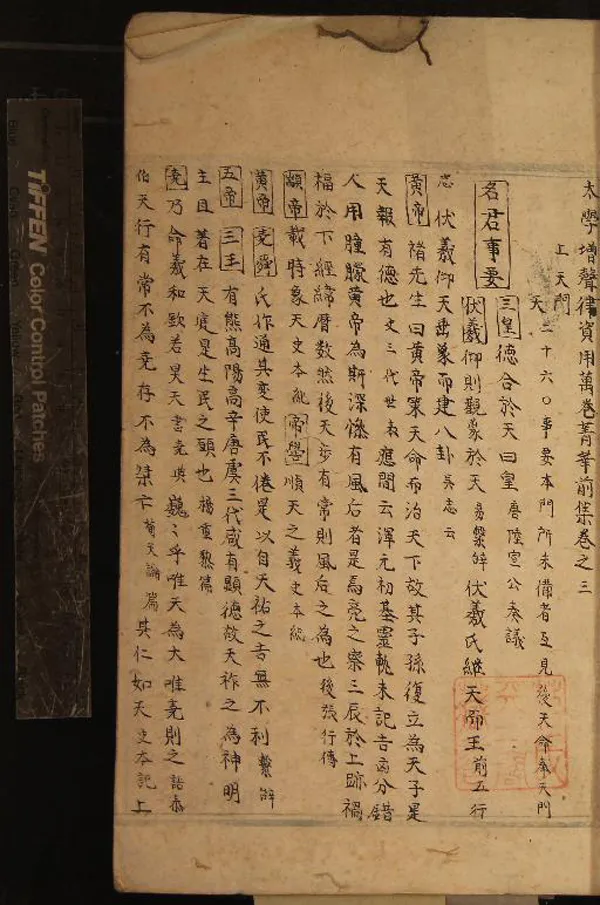 太學增聲律資用萬卷菁華前集卷之三
上天門
天三十六〇事要本門所未備者互見後天命奉天門
名君事要
三皇德合於天曰皇唐陸宣公奏議
伏羲仰則觀象於天易繫辞伏羲氏継天而王前五行
志伏羲仰天垂象而建八卦吳志云
黃帝褚先生曰黃帝策天命而治天下故其子孫復立為天子是
天報有德也史三代世表應間云渾元初基靈軌未記吉凶分錯
人用朣朦黃帝為斯深慘有風后者是焉亮之察三辰於上跡禍
福於下經緯曆数然後天步有常則風后之為也後張行傳
顓帝載時象天史本紀帝嚳順天之義史本紀
黃帝堯舜氏作通其変使民不倦是以自天祐之吉無不利繫辞
五帝三王有熊高陽高辛唐虞三代咸有顯德故天祚之為神明
主且著在天㝎是生民之頭也揚重黎篇
堯乃命羲和欽若昊天書堯典巍〻乎唯天為大唯堯則之語泰
伯天行有常不為堯存不為桀亡荀天論篇其仁如天史本記上
TIFFEN Color Control Patches
Blue